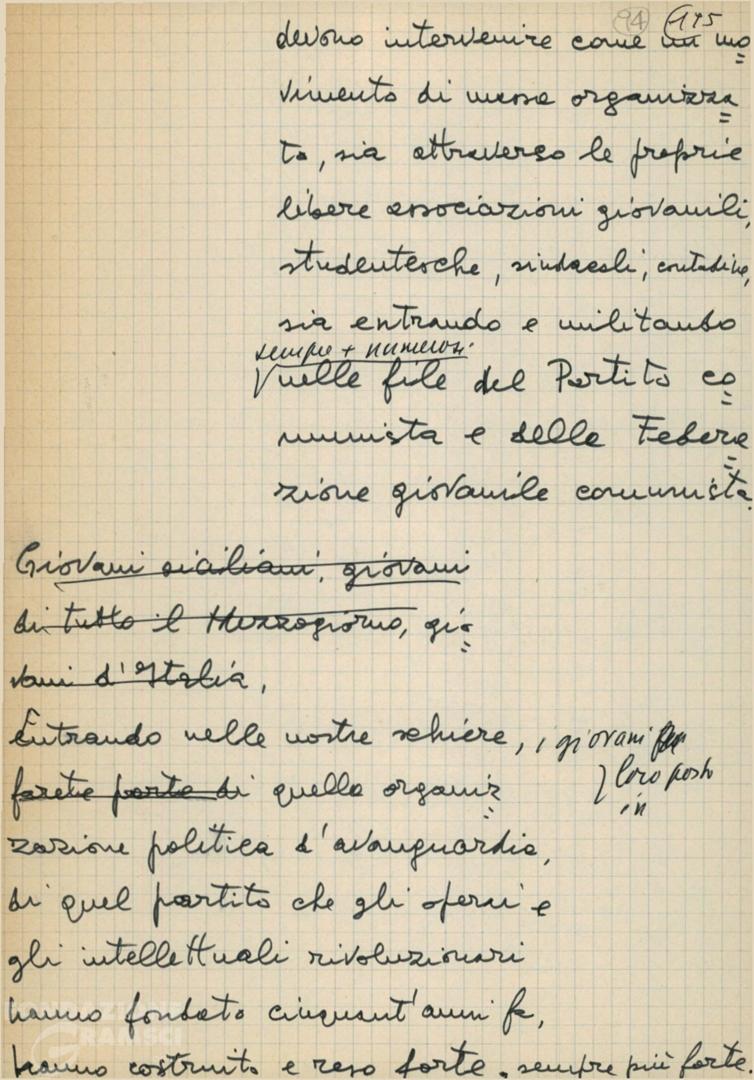 94 195
devono intervenire come un mo=
vimento di massa organizza=
to, sia attraverso le proprie
libere associazioni giovanili,
studentesche, sindacali, contadine,
sia entrando e militando
sempre + numerosi
nelle file del Partito co=
munista e della Federa=
zione giovanile comunista.
Giovani siciliani, giovani
di tutto il Mezzogiorno, gio=
vani d'Italia,
Entrando nelle nostre schiere, i giovani
loro posto
farete parte di quella organiz=
in
zazione politica d'avanguardia,
di quel partito che gli operai e
gli intellettuali rivoluzionari
hanno fondato cinquant'anni fa,
hanno costruito e reso forte, sempre più forte.
FONDAZIONE
GRAMSCI